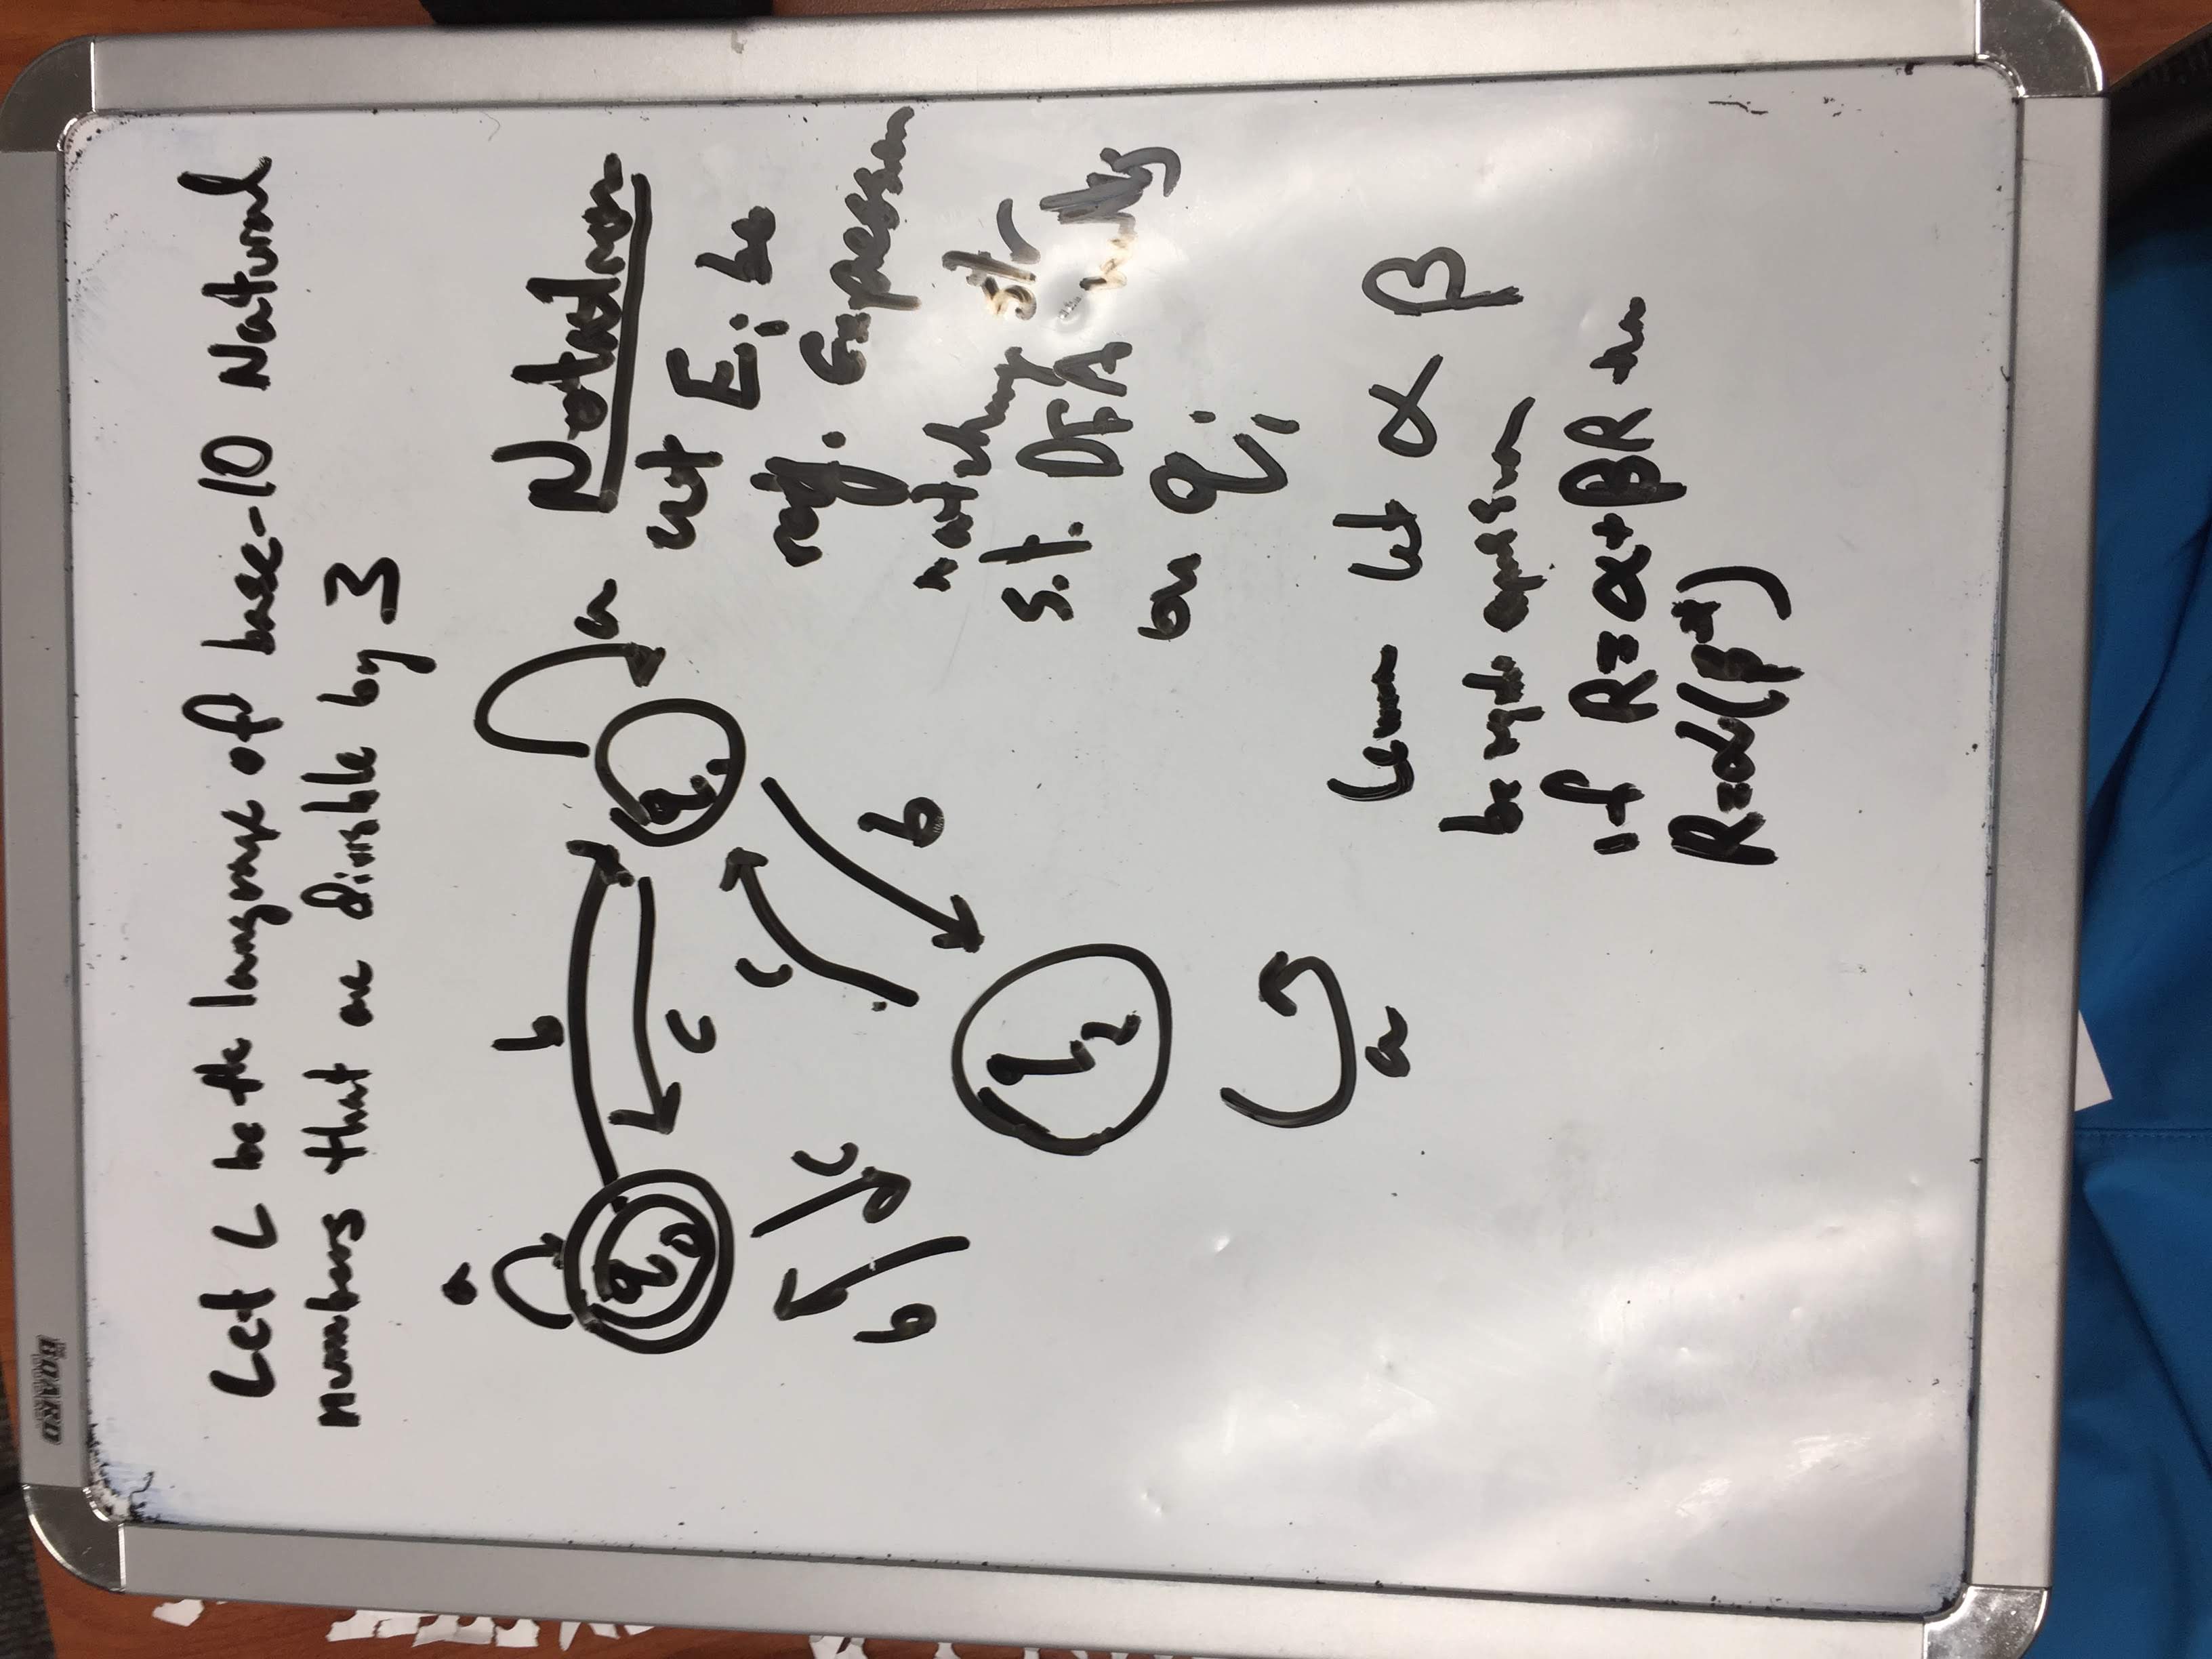 THE BOARD DUDES
Let L be the language of base-10 Natural
numbers that are divisible by 3
a
b
a
q0
c
q1
c
b
c
b
q2
a
Notation
Let Ei be
reg. Expression
matching str
s.t. DFA halts
on qi
Lemma let α β
be regular expression
if R=α+βR then
R=α(β*)